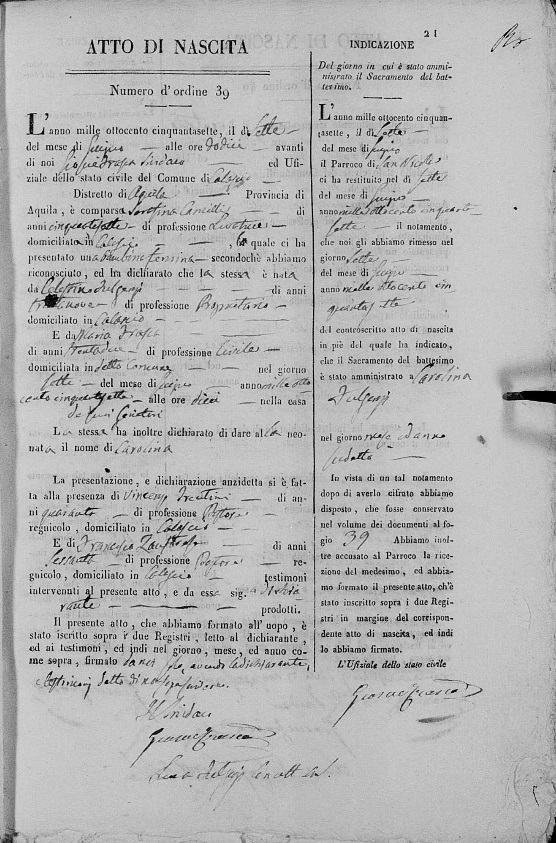 21
ATTO DI NASCITA
Numero d'ordine 39
L'anno mille ottocento cinquantasette, il dì sette
del mese di Giugno alle ore dodici avanti
di noi Giosuè Frasca Sindaco ed Ufi-
ziale dello stato civile del Comune di Calascio
Distretto di Aquila Provincia di
Aquila, è comparsa Serafina di
anni cinquantasette di professione Levatrice
domiciliata in Calascio, la quale ci ha
presentato una Bambina femina secondochè abbiamo
riconosciuto, ed ha dichiarato che la stessa è nata
da Celestino di anni
trentanove di professione Proprietario
domiciliato in Calascio
E da Maria Frasca
di anni trentadue di professione Civile
domiciliata in detto Comune nel giorno
sette del mese di Giugno anno mille otto
cento cinquantasette alle ore dieci nella casa
de suoi Genitori
La stessa ha inoltre dichiarato di dare alla neo-
nata il nome di Carolina
La presentazione, e dichiarazione anzidetta si è fat-
ta alla presenza di Vincenzo di an-
ni quaranta di professione
regnicolo, domiciliato in Calascio
E di Francesco di anni
sessanta di professione re-
gnicolo, domiciliato in Calascio testimoni
intervenuti al presente atto, e da essa sig. Dichia
rante prodotti.
Il presente atto, che abbiamo formato all'uopo, è
stato iscritto sopra i due Registri, letto al dichiarante,
ed ai testimoni, ed indi nel giorno, mese, ed anno co-
me sopra, firmato da noi solo, avendo la dichiarante,
e testimonj detto di non saper scrivere.
Il Sindaco
Giosuè Frasca
INDICAZIONE
Del giorno in cui è stato ammi-
nistrato il Sacramento del bat-
tesimo.
L'anno mille ottocento cinquan-
tasette, il dì sette
del mese di Giugno
il Parroco di San Nicola
ci ha restituito nel dì sette
del mese di Giugno
anno mille ottocento cinquanta
sette il notamento,
che noi gli abbiamo rimesso nel
giorno sette
del mese di Giugno
anno mille ottocento cin
quantasette
del controscritto atto di nascita
in piè del quale ha indicato,
che il Sacramento del battesimo
è stato amministrato a Carolina
nel giorno mese ed anno
sudetto
In vista di un tal notamento
dopo di averlo cifrato abbiamo
disposto, che fosse conservato
nel volume dei documenti al fo-
gio 39 Abbiamo inol-
tre accusato al Parroco la rice-
zione del medesimo, ed ab-
biamo formato il presente atto, ch'è
stato inscritto sopra i due Regi-
stri in margine del corrispon-
dente atto di nascita, ed indi
lo abbiamo firmato.
L'Ufiziale dello stato civile
Giosuè Frasca